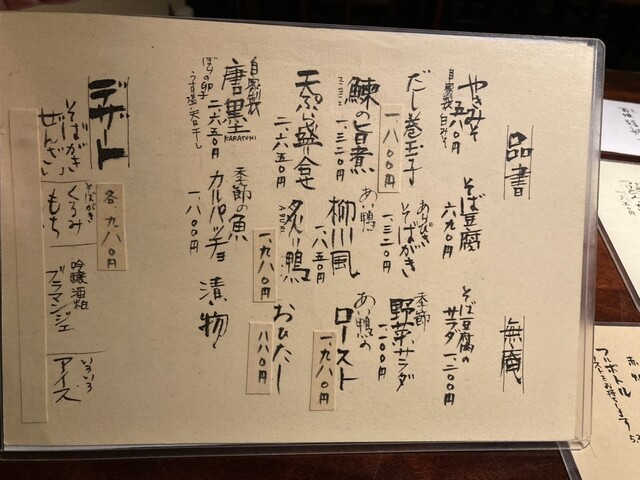 品書
無庵
やきみそ
自家製白みそ
そば豆腐
六九〇円
そば豆腐の
サラダ 一、二〇〇円
だし巻玉子
あらびき
そばがき
一、三二〇円
季節
野菜サラダ
鰊の旨煮
ニシン
一、三二〇円
あい鴨
柳川風
一、六五〇円
あい鴨の
ロースト
一、九八〇円
天ぷら盛り合せ
二、六五〇円
炙り鴨
一、九八〇円
おひたし
八八〇円
自家製
唐墨
KARASUMI
二、六五〇円
ぼらの卵
うす塩・天日干し
季節の魚
カルパッチョ
一、八〇〇円
漬物
デザート
各九八〇円
そばがき
ぜんざい
そばがき
くるみ
もち
吟醸酒粕
ブラマンジェ
いろいろ
アイス